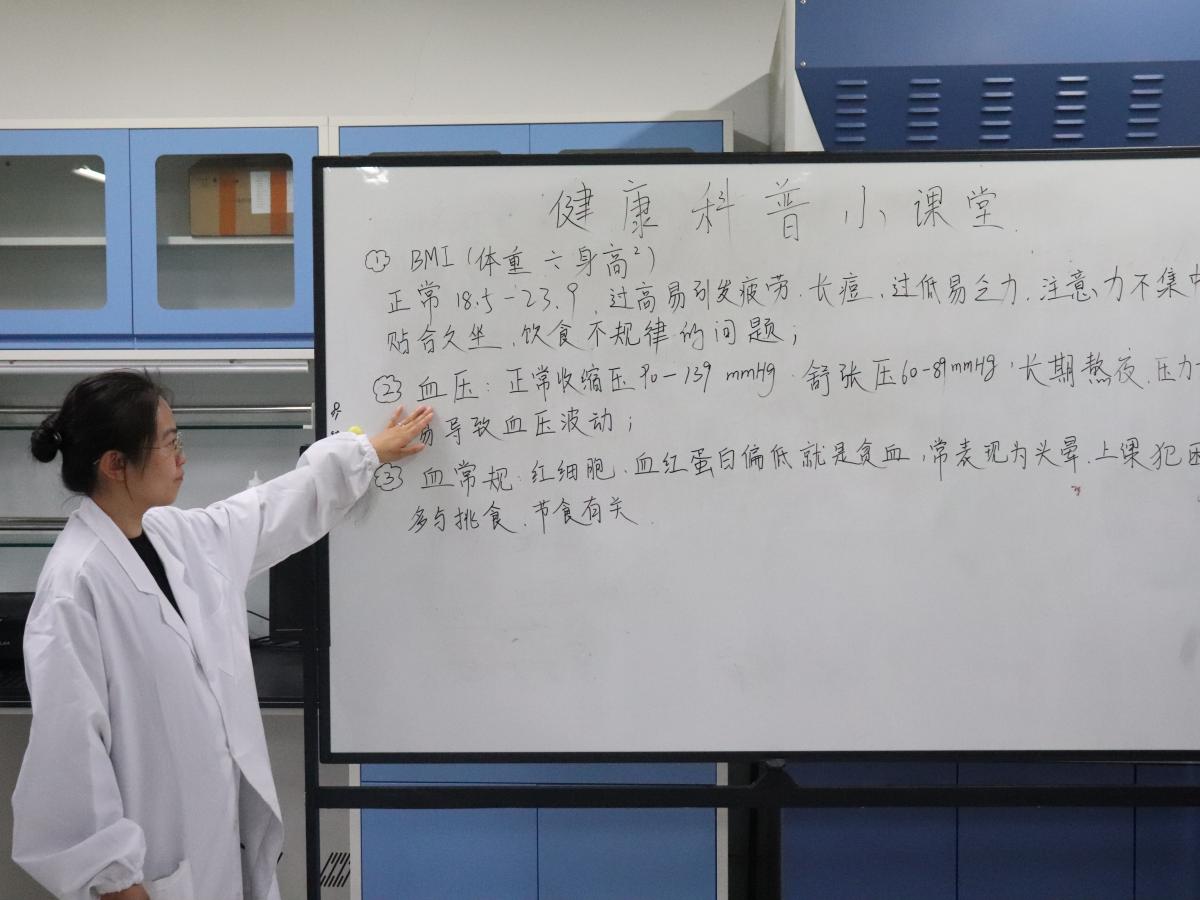 健康科普小课堂.
① BMI (体重÷身高²)
正常 18.5-23.9、过高易引发疲劳、长痘、过低易乏力、注意力不集中
贴合久坐、饮食不规律的问题;
② 血压: 正常收缩压90-139 mmHg、舒张压60-89mmHg,长期熬夜、压力
易导致血压波动;
③ 血常规:红细胞、血红蛋白偏低就是贫血,常表现为头晕、上课犯困
多与挑食、节食有关.